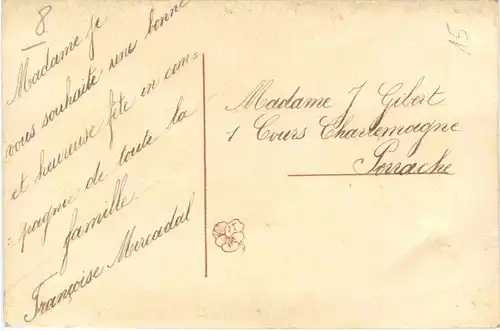 8
Madame je
vous souhaite une bonne
et heureuse fête en com-
=pagnie de toute la
famille.
Françoise Mercadal
15
Madame J Gibert
1 Cours Charlemagne
Perrache